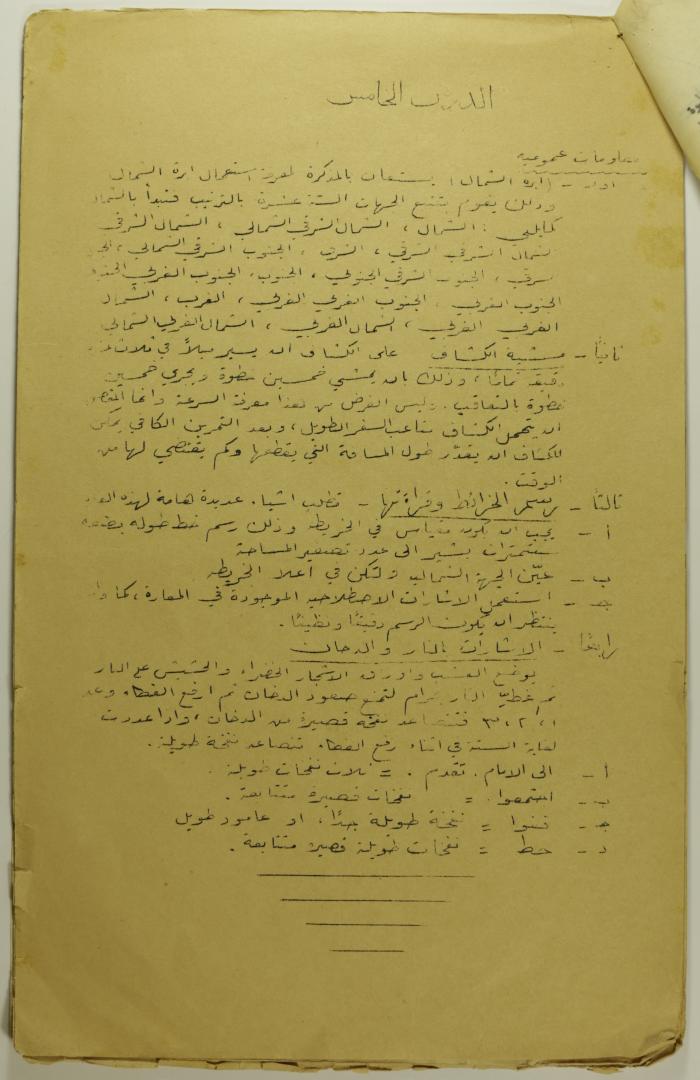 الدرس الخامس
معلومات عمومية
اولا - (ابرة الشمال) يستعان بالمذكرة لمعرفة استعمال ابرة الشمال
وذلك يقوم بتتبع الجهات الستة عشرة بالترتيب فتبدأ بالشمال
كمايلي : الشمال ، الشمال الشرقي الشمالي ، الشمال الشرقي
الشمال الشرقي الشرقي ، الشرق ، الجنوب الشرقي الشمالي ،
شرقي ، الجنوب الشرقي الجنوبي ، الجنوب ، الجنوب الغربي
الجنوب الغربي ، الجنوب الغربي الغربي ، الغرب ، الشمال
الغربي الغربي ، الشمال الغربي ، الشمال الغربي الشمالي
ثانيا - مشية الكشاف على الكشاف ان يسير ميلاً في ثلاث عشرة
دقيقة تماما ، وذلك بان يمشي خمسين خطوة ويجري خمسين
خطوة بالتعاقب . وليس الغرض من هذا معرفة السرعة وانما المقصود
ان يتحمل الكشاف متاعب السفر الطويل ، وبعد التمرين الكافي يمكن
للكشاف ان يقدّر طول المسافة التي يقطعها وكم يقتضي لها من
الوقت .
ثالثا - رسم الخرائط وقراءتها - تطلب اشياء عديدة هامة لهذه
أ - يجب ان يكون مقياس في الخريطة وذلك رسم خط طوله بضعة
سنتمترات يشير الى عدد تصغير المساحة
ب - عيّن الجهة الشمالية ولتكن في اعلا الخريطة
جـ - استعمل الاشارات الاصطلاحية الموجودة في ، كما وانه
ينتظر ان يكون الرسم دقيقا ونظيفا .
رابعا - الاشارات بالنار والدخان
يوضع العشب واوراق الاشجار الخضراء والحشيش على النار
ثم غطيّ النار بحرام لتمنع صعود الدخان ثم ارفع الغطاء وعد
١ ، ٢ ، ٣ فتتصاعد نفخة قصيرة من الدخان ، واذا عددت
لغاية الستة في اثناء رفع الغطاء تتصاعد نفخة طويلة .
أ - الى الامام . تقدم . = ثلاث نفخات طويلة .
ب - اجتمعوا . = نفخات قصيرة متتابعة .
جـ - قفوا = نفخة طويلة جدًا ، او عامود طويل
د - خطر = نفخات طويلة قصيرة متتابعة .